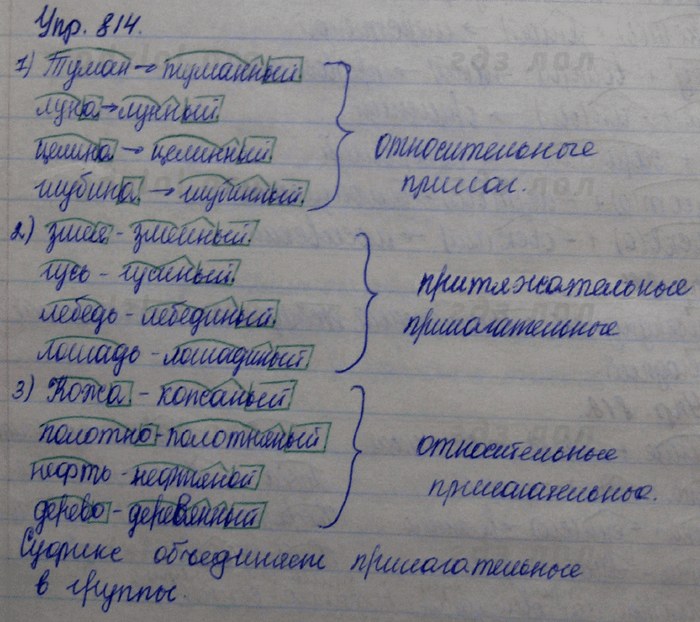 Упр. 814.
1) Туман → туманный
луна → лунный
целина → целинный
глубина → глубинный
относительные
прилаг.
2) змея - змеиный
гусь - гусиный
лебедь - лебединый
лошадь - лошадиный
притяжательные
прилагательные
3) Кожа - кожаный
полотно - полотняный
нефть - нефтяной
дерево - деревянный
относительные
прилагательные.
Суффикс объединяет прилагательные
в группы.